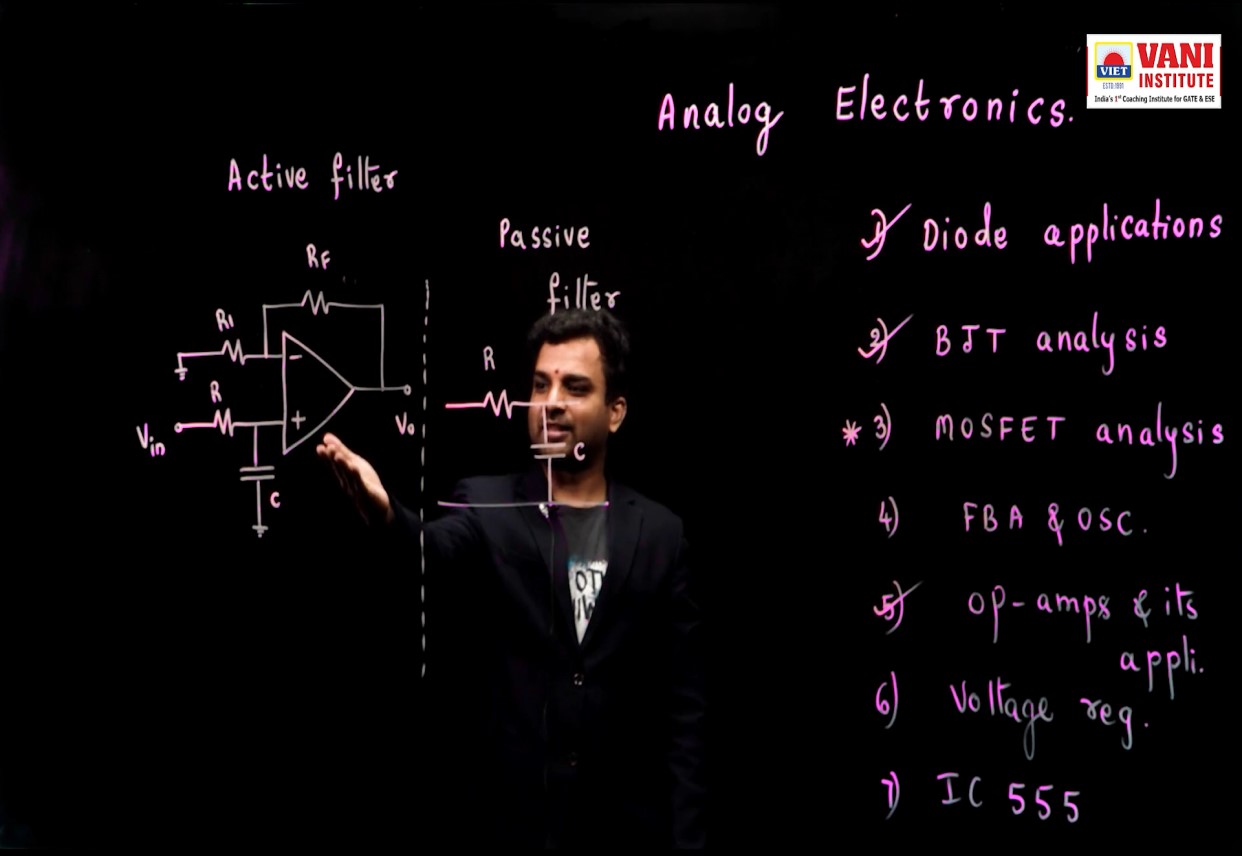 VIET
ESTD:1981
VANI
INSTITUTE
India's 1st Coaching Institute for GATE & ESE
Analog Electronics.
Active filter
Passive
filter
RF
R1
R
Vin
C
-
+
Vo
R
C
1) Diode applications
2) BJT analysis
* 3) MOSFET analysis
4) FBA & OSC.
5) Op-amps & its
appli.
6) Voltage reg.
7) IC 555